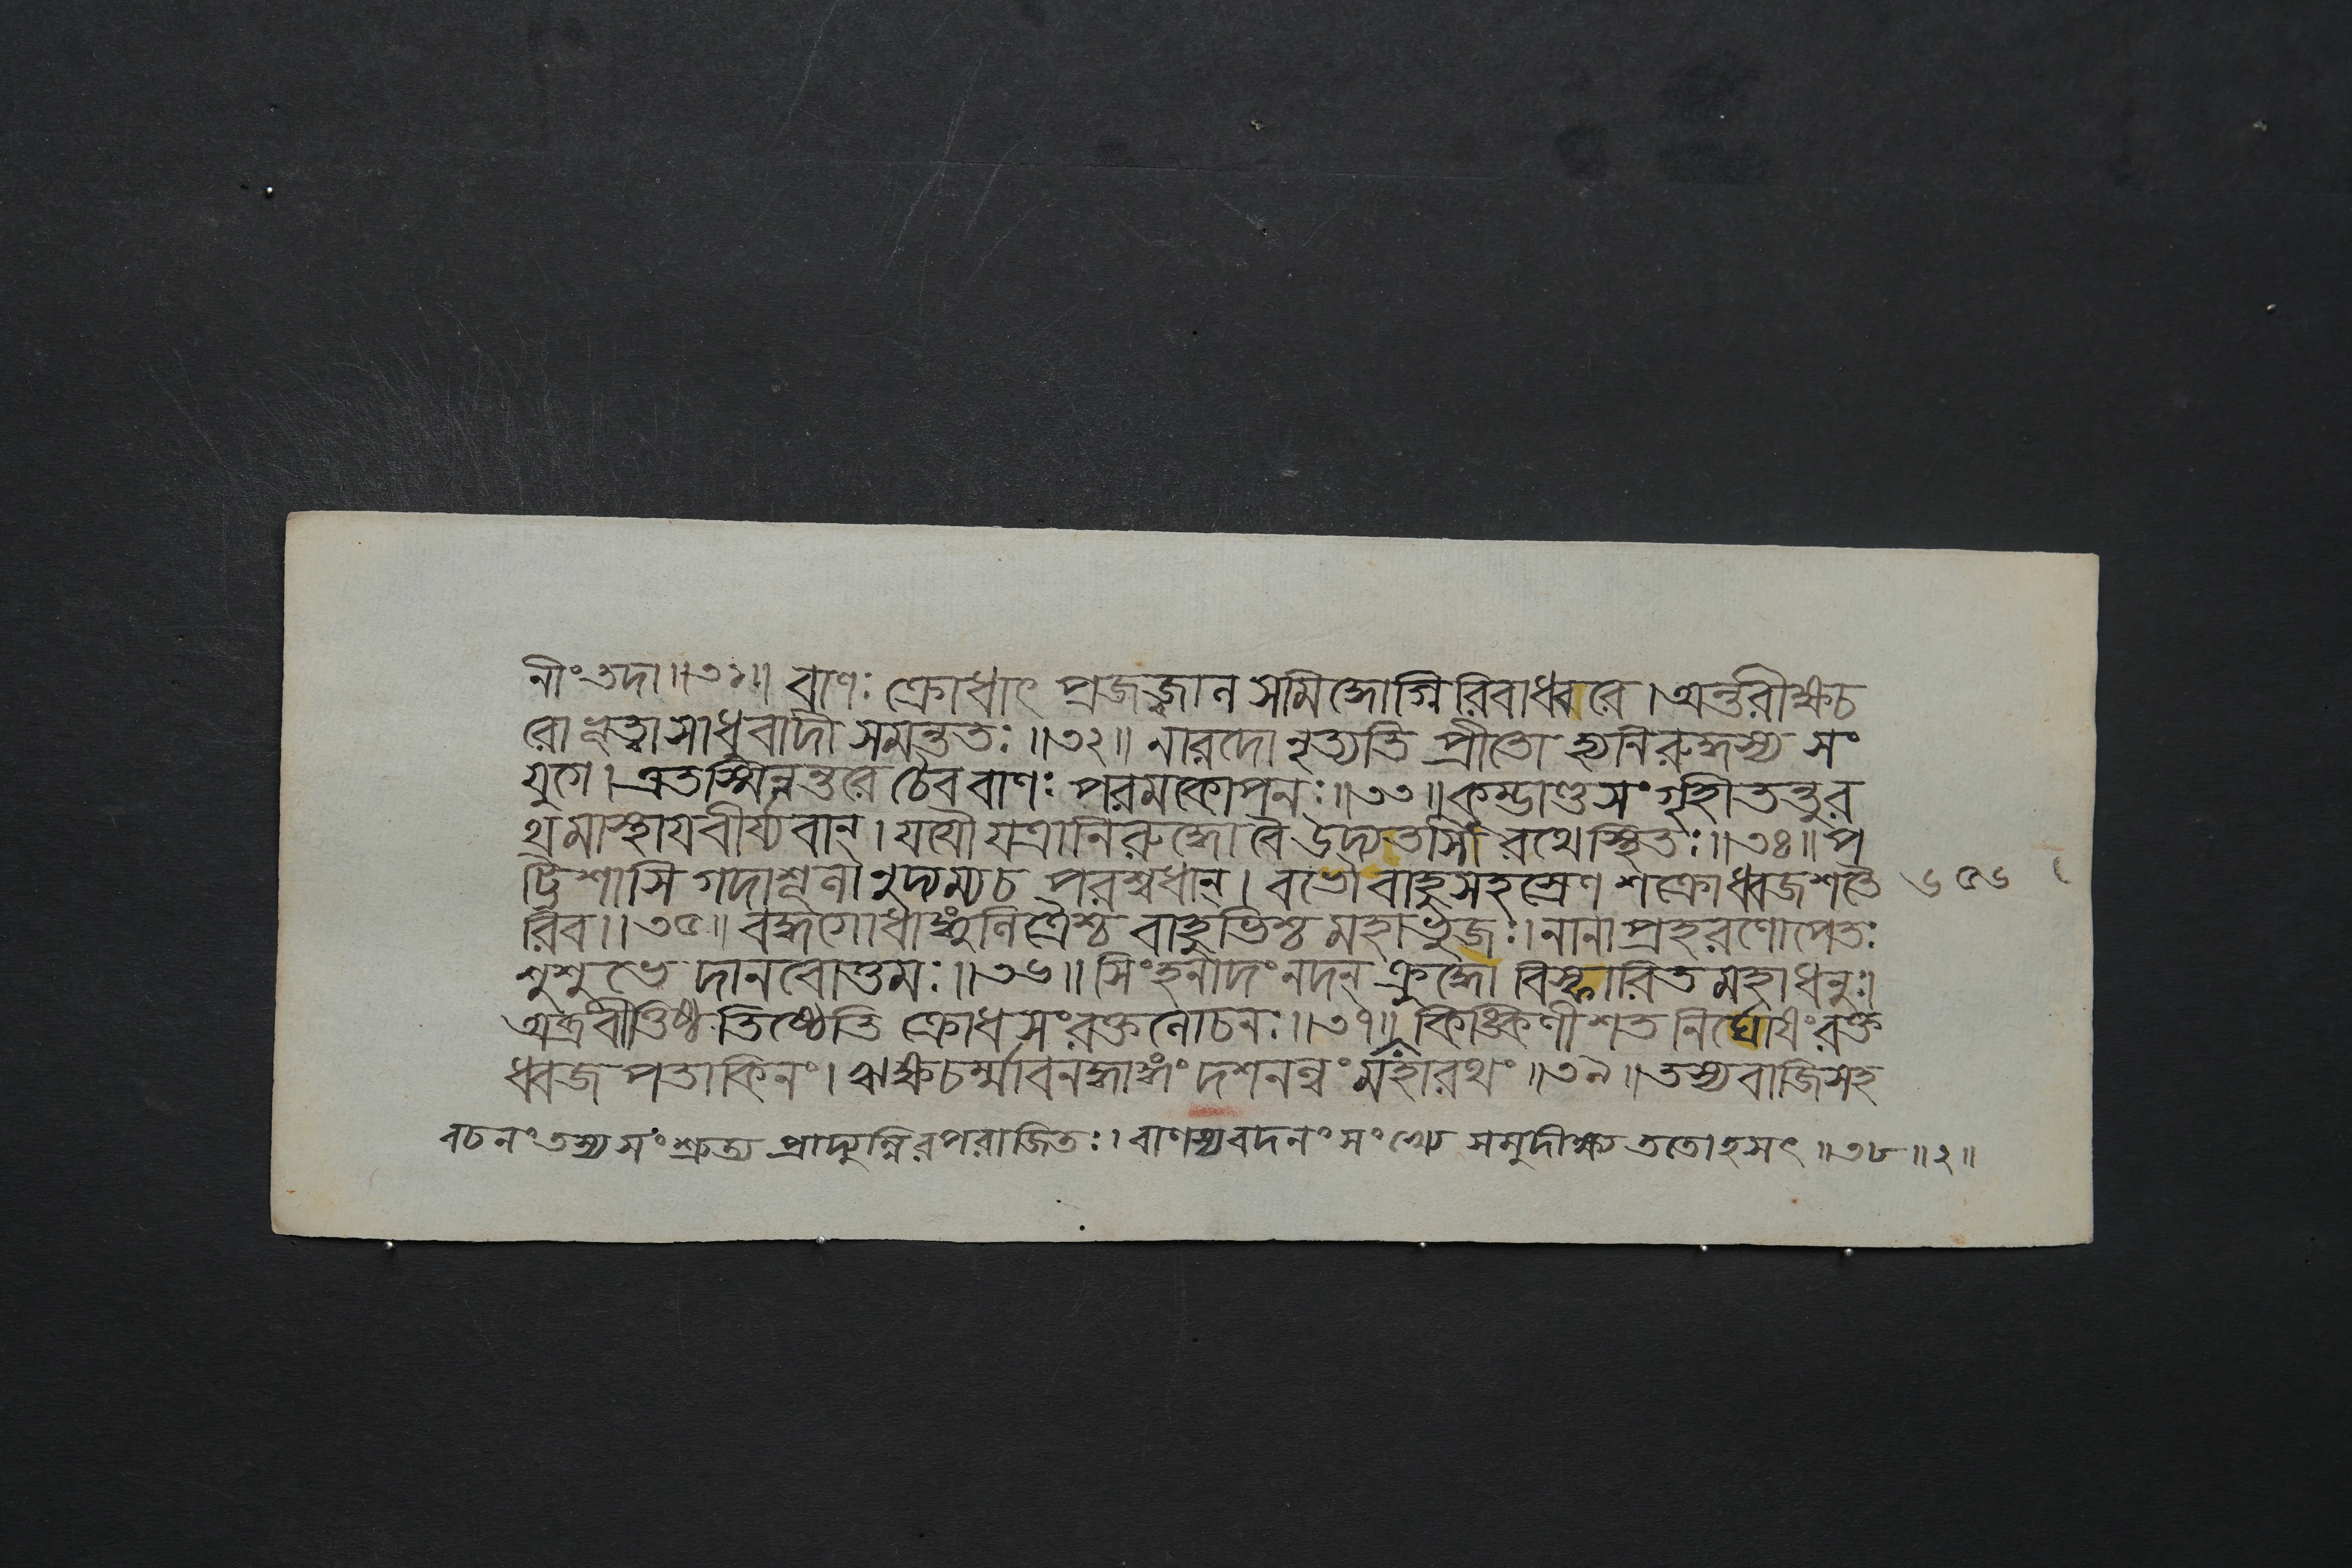 নীং তদা ॥ ৩১ ॥ বাণঃ ক্রোধাৎ প্রজজ্বাল সমিদ্ধোগ্নি রিবাধ্বরে । অন্তরীক্ষচ
রো ভূত্বা সাধুবাদী সমন্ততঃ ॥ ৩২ ॥ নারদো নৃত্যতি প্রীতো হ্যনিরুদ্ধস্য সং
যুগে । এতস্মিন্নন্তরে চৈব বাণঃ পরমকোপনঃ ॥ ৩৩ ॥ কুম্ভাণ্ডসংগৃহীতন্তু র
থমাস্থায বীর্য্যবান্ । যযৌ যত্রানিরুদ্ধো বৈ উদ্যতাসী রথেস্থিতঃ ॥ ৩৪ ॥ প
ট্টিশাসি গদাশূলা নুদ্যম্য চ পরশ্বধান্ । বভৌ বাহুসহস্রেণ শক্রোধ্বজশতৈ ৬৫৬
রিব ॥ ৩৫ ॥ বদ্ধগোধাঙ্গুলিত্রৈশ্চ বাহুভিশ্চ মহাভুজঃ । নানা প্রহরণোপেতঃ
শুশুভে দানবোত্তমঃ ॥ ৩৬ ॥ সিংহনাদং নদন্ ক্রুদ্ধো বিস্ফারিত মহাধনুঃ ।
অব্রবীত্তিষ্ঠ তিষ্ঠেতি ক্রোধসংরক্তলোচনঃ ॥ ৩৭ ॥ কিঙ্কিণীশত নির্ঘোষং রক্ত
ধ্বজ পতাকিনং । ঋক্ষচর্ম্মাবনদ্ধাঙ্গং দশনল্বং মহারথং ॥ ৩৯ ॥ তস্য বাজিসহ
বচনং তস্য সংশ্রুত্য প্রাদ্যুম্নিরপরাজিতঃ । বাণস্য বদনং সংখ্যে সমুদীক্ষ্য ততোহসৎ ॥ ৩৮ ॥ ২ ॥